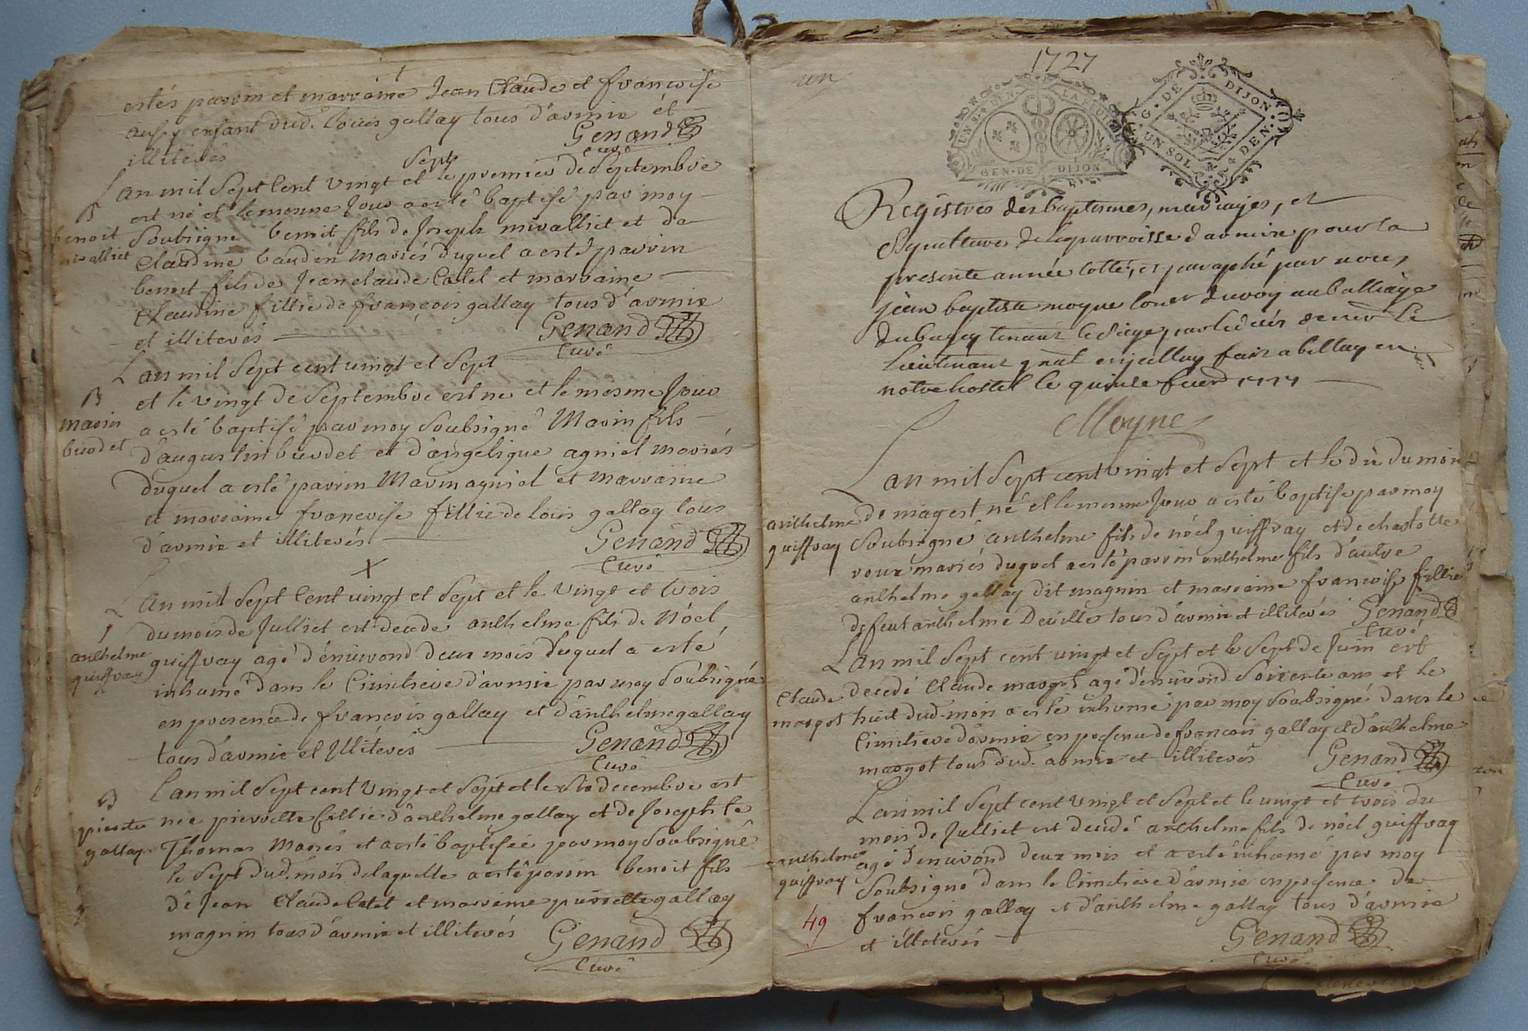 estés parrin et marraine Jean Claude et françoise
aussy enfant dud. louis gallay tous d'armix et
illiterés
Genand
Curé
B
benoit
mivalliet
sept
Lan mil Sept Cent vingt et le premier de Septembre
est né et le mesme Jour a esté baptisé par moy
Soubsigné benoit fils de Joseph mivalliet et de
Claudine baudin mariés duquel a esté parrin
benoit fils de Jean claude Catel et marraine
Claudine fillie de françois gallay tous d'armix
et illiterés
Genand
Curé
B
marin
burdet
Lan mil Sept cent vingt et Sept
et le vingt de Septembre est né et le mesme Jour
a esté baptisé par moy Soubsigné Marin fils
d'augustin burdet et d'angelique agniel mariés
duquel a esté parrin Marin agniel et marraine
et maraine françoise fillie de louis gallay tous
d'armix et illiterés
Genand
Curé
X
anthelme
guiffray
Lan mil Sept Cent vingt et Sept et le vingt et trois
du mois de Julliet est decede anthelme fils de Nöel
guiffray agé d'enuirond deux mois duquel a esté
inhumé dans le Cimitiere d'armix par moy Soubsigné
en presence de francois gallay et d'anthelme gallay
tous d'armix et Illiterés
Genand
Curé
B
pierrette
gallay
Lan mil Sept cent vingt et Sept et le Six decembre est
née pierrette fillie d'anthelme gallay et de Josephte
Thomas Mariés et a esté baptisée par moy Soubsigné
le Sept dud. mois de laquelle a esté parrin benoit fils
de Jean Claude Catel et marraine pierrette gallay
magnin tous d'armix et illiterés
Genand
Curé
un
1727
GEN · DE DIJON
G · DE DIJON
UN SOL
DEN ·
Registres des baptemes, mariages, et
Sepultures de la parroisse d'armix pour la
presente année cotté, et paraphé par nous,
jean baptiste moyne Coner du roy au balliage
du bugey tenant le siege, par le decés de mr le
Lieutenant gnal enjcelluy fait a belley en
notre hostel le quinze feuer 1727
Moyne
anthelme
guiffray
Lan mil Sept cent vingt et Sept et le dix du mois
de may est né et le mesme Jour a esté baptisé par moy
Soubsigné anthelme fils de nöel guiffray et de charlotte
roux mariés duquel a esté parrin anthelme fils d'autre
anthelme gallay dit magnin et maraine françoise fillie
de feut anthelme Deville tous d'armix et illiterés
Genand
Curé
Claude
margot
Lan mil Sept cent vingt et Sept et le Sept de Juin est
decedé Claude margot agé d'enuirond Soixente ans et le
huit dud. mois a esté inhumé par moy Soubsigné dans le
Cimitiere d'armix en presence de francois gallay et d'anthelme
margot tous dud. armix et illiterés
Genand
Curé
anthelme
guiffray
Lan mil Sept cent vingt et Sept et le vingt et trois du
mois de Julliet est decedé anthelme fils de nöel guiffray
agé d'enuirond deux mois et a esté inhumé par moy
Soubsigné dans le Cimitiere d'armix en presence de
francois gallay et d'anthelme gallay tous d'armix
et illiterés
Genand
Curé
49